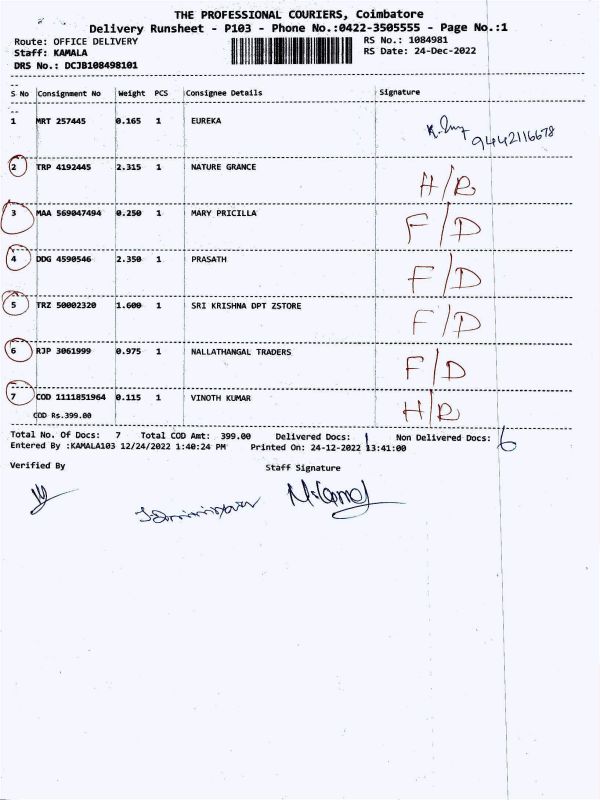 THE PROFESSIONAL COURIERS, Coimbatore
Delivery Runsheet - P103 - Phone No.:0422-3505555 - Page No.:1
Route: OFFICE DELIVERY RS No.: 1084981
Staff: KAMALA RS Date: 24-Dec-2022
DRS No.: DCJB108498101
S No Consignment No Weight PCS Consignee Details Signature
1 MRT 257445 0.165 1 EUREKA 9442116678
2 TRP 4192445 2.315 1 NATURE GRANCE H/R
3 MAA 569047494 0.250 1 MARY PRICILLA F/D
4 DDG 4590546 2.350 1 PRASATH F/D
5 TRZ 50002320 1.600 1 SRI KRISHNA DPT ZSTORE F/D
6 RJP 3061999 0.975 1 NALLATHANGAL TRADERS F/D
7 COD 1111851964 0.115 1 VINOTH KUMAR H/R
COD Rs.399.00
Total No. Of Docs: 7 Total COD Amt: 399.00 Delivered Docs: 1 Non Delivered Docs: 6
Entered By :KAMALA103 12/24/2022 1:40:24 PM Printed On: 24-12-2022 13:41:00
Verified By Staff Signature